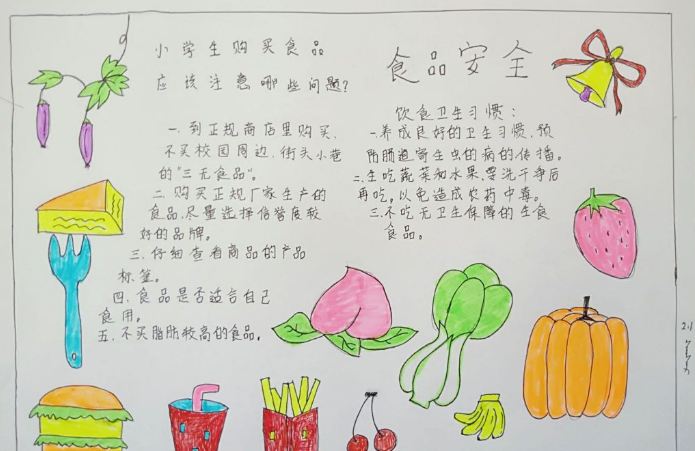 小学生购买食品
应该注意哪些问题?
一.到正规商店里购买、
不买校园周边、街头小巷
的"三无食品"。
二.购买正规厂家生产的
食品、尽量选择信誉度较
好的品牌。
三.仔细查看商品的产品
标签。
四.食品是否适合自己
食用。
五.不买脂肪较高的食品。
食品安全
饮食卫生习惯:
一.养成良好的卫生习惯,预
防肠道寄生虫的病的传播。
二.生吃蔬菜和水果,要洗干净后
再吃,以免造成农药中毒。
三.不吃无卫生保障的生食
食品。